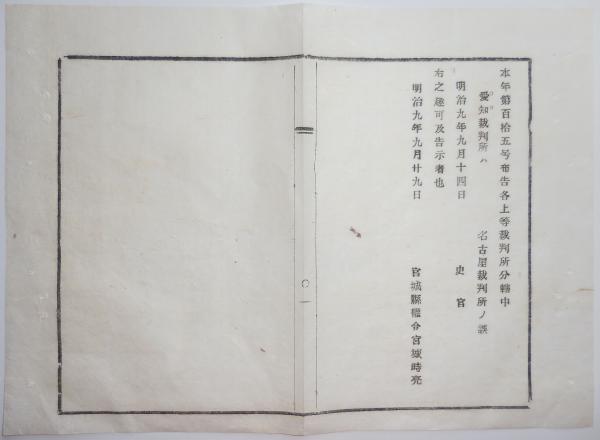 本年第百拾五号布告各上等裁判所分轄中
愛知裁判所ハ 名古屋裁判所ノ誤
明治九年九月十四日 史官
右之趣可及告示者也
明治九年九月廿九日 宮城縣權令宮城時亮